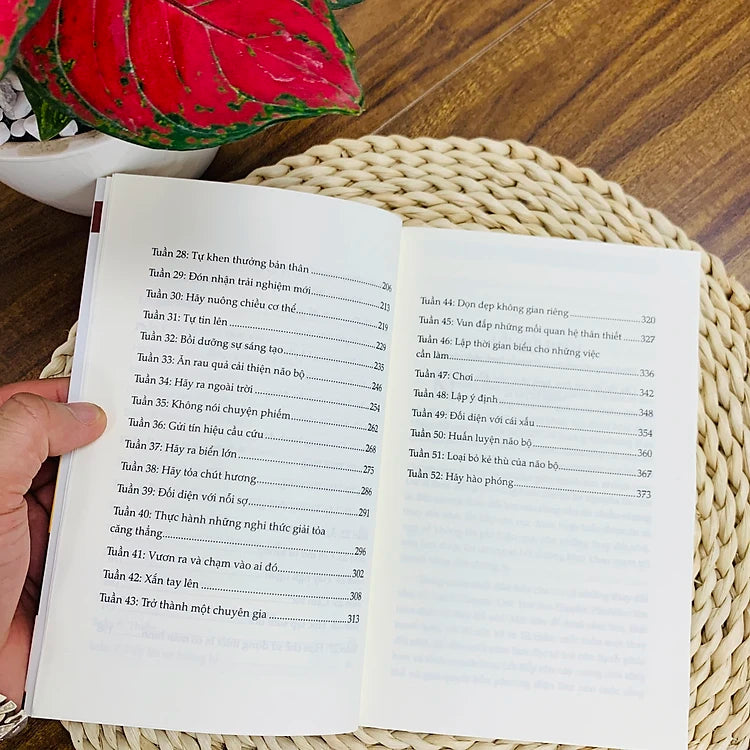 Tuần 28: Tự khen thưởng bản thân ........ 206
Tuần 29: Đón nhận trải nghiệm mới ........ 213
Tuần 30: Hãy nuông chiều cơ thể ........ 219
Tuần 31: Tự tin lên ........ 229
Tuần 32: Bồi dưỡng sự sáng tạo ........ 235
Tuần 33: Ăn rau quả cải thiện não bộ ........ 246
Tuần 34: Hãy ra ngoài trời ........ 254
Tuần 35: Không nói chuyện phiếm ........ 262
Tuần 36: Gửi tín hiệu cầu cứu ........ 268
Tuần 37: Hãy ra biển lớn ........ 275
Tuần 38: Hãy tỏa chút hương ........ 286
Tuần 39: Đối diện với nỗi sợ ........ 291
Tuần 40: Thực hành những nghi thức giải tỏa
căng thẳng ........ 296
Tuần 41: Vươn ra và chạm vào ai đó ........ 302
Tuần 42: Xắn tay lên ........ 308
Tuần 43: Trở thành một chuyên gia ........ 313
Tuần 44: Dọn dẹp không gian riêng ........ 320
Tuần 45: Vun đắp những mối quan hệ thân thiết ........ 327
Tuần 46: Lập thời gian biểu cho những việc
cần làm ........ 336
Tuần 47: Chơi ........ 342
Tuần 48: Lập ý định ........ 348
Tuần 49: Đối diện với cái xấu ........ 354
Tuần 50: Huấn luyện não bộ ........ 360
Tuần 51: Loại bỏ kẻ thù của não bộ ........ 367
Tuần 52: Hãy hào phóng ........ 373